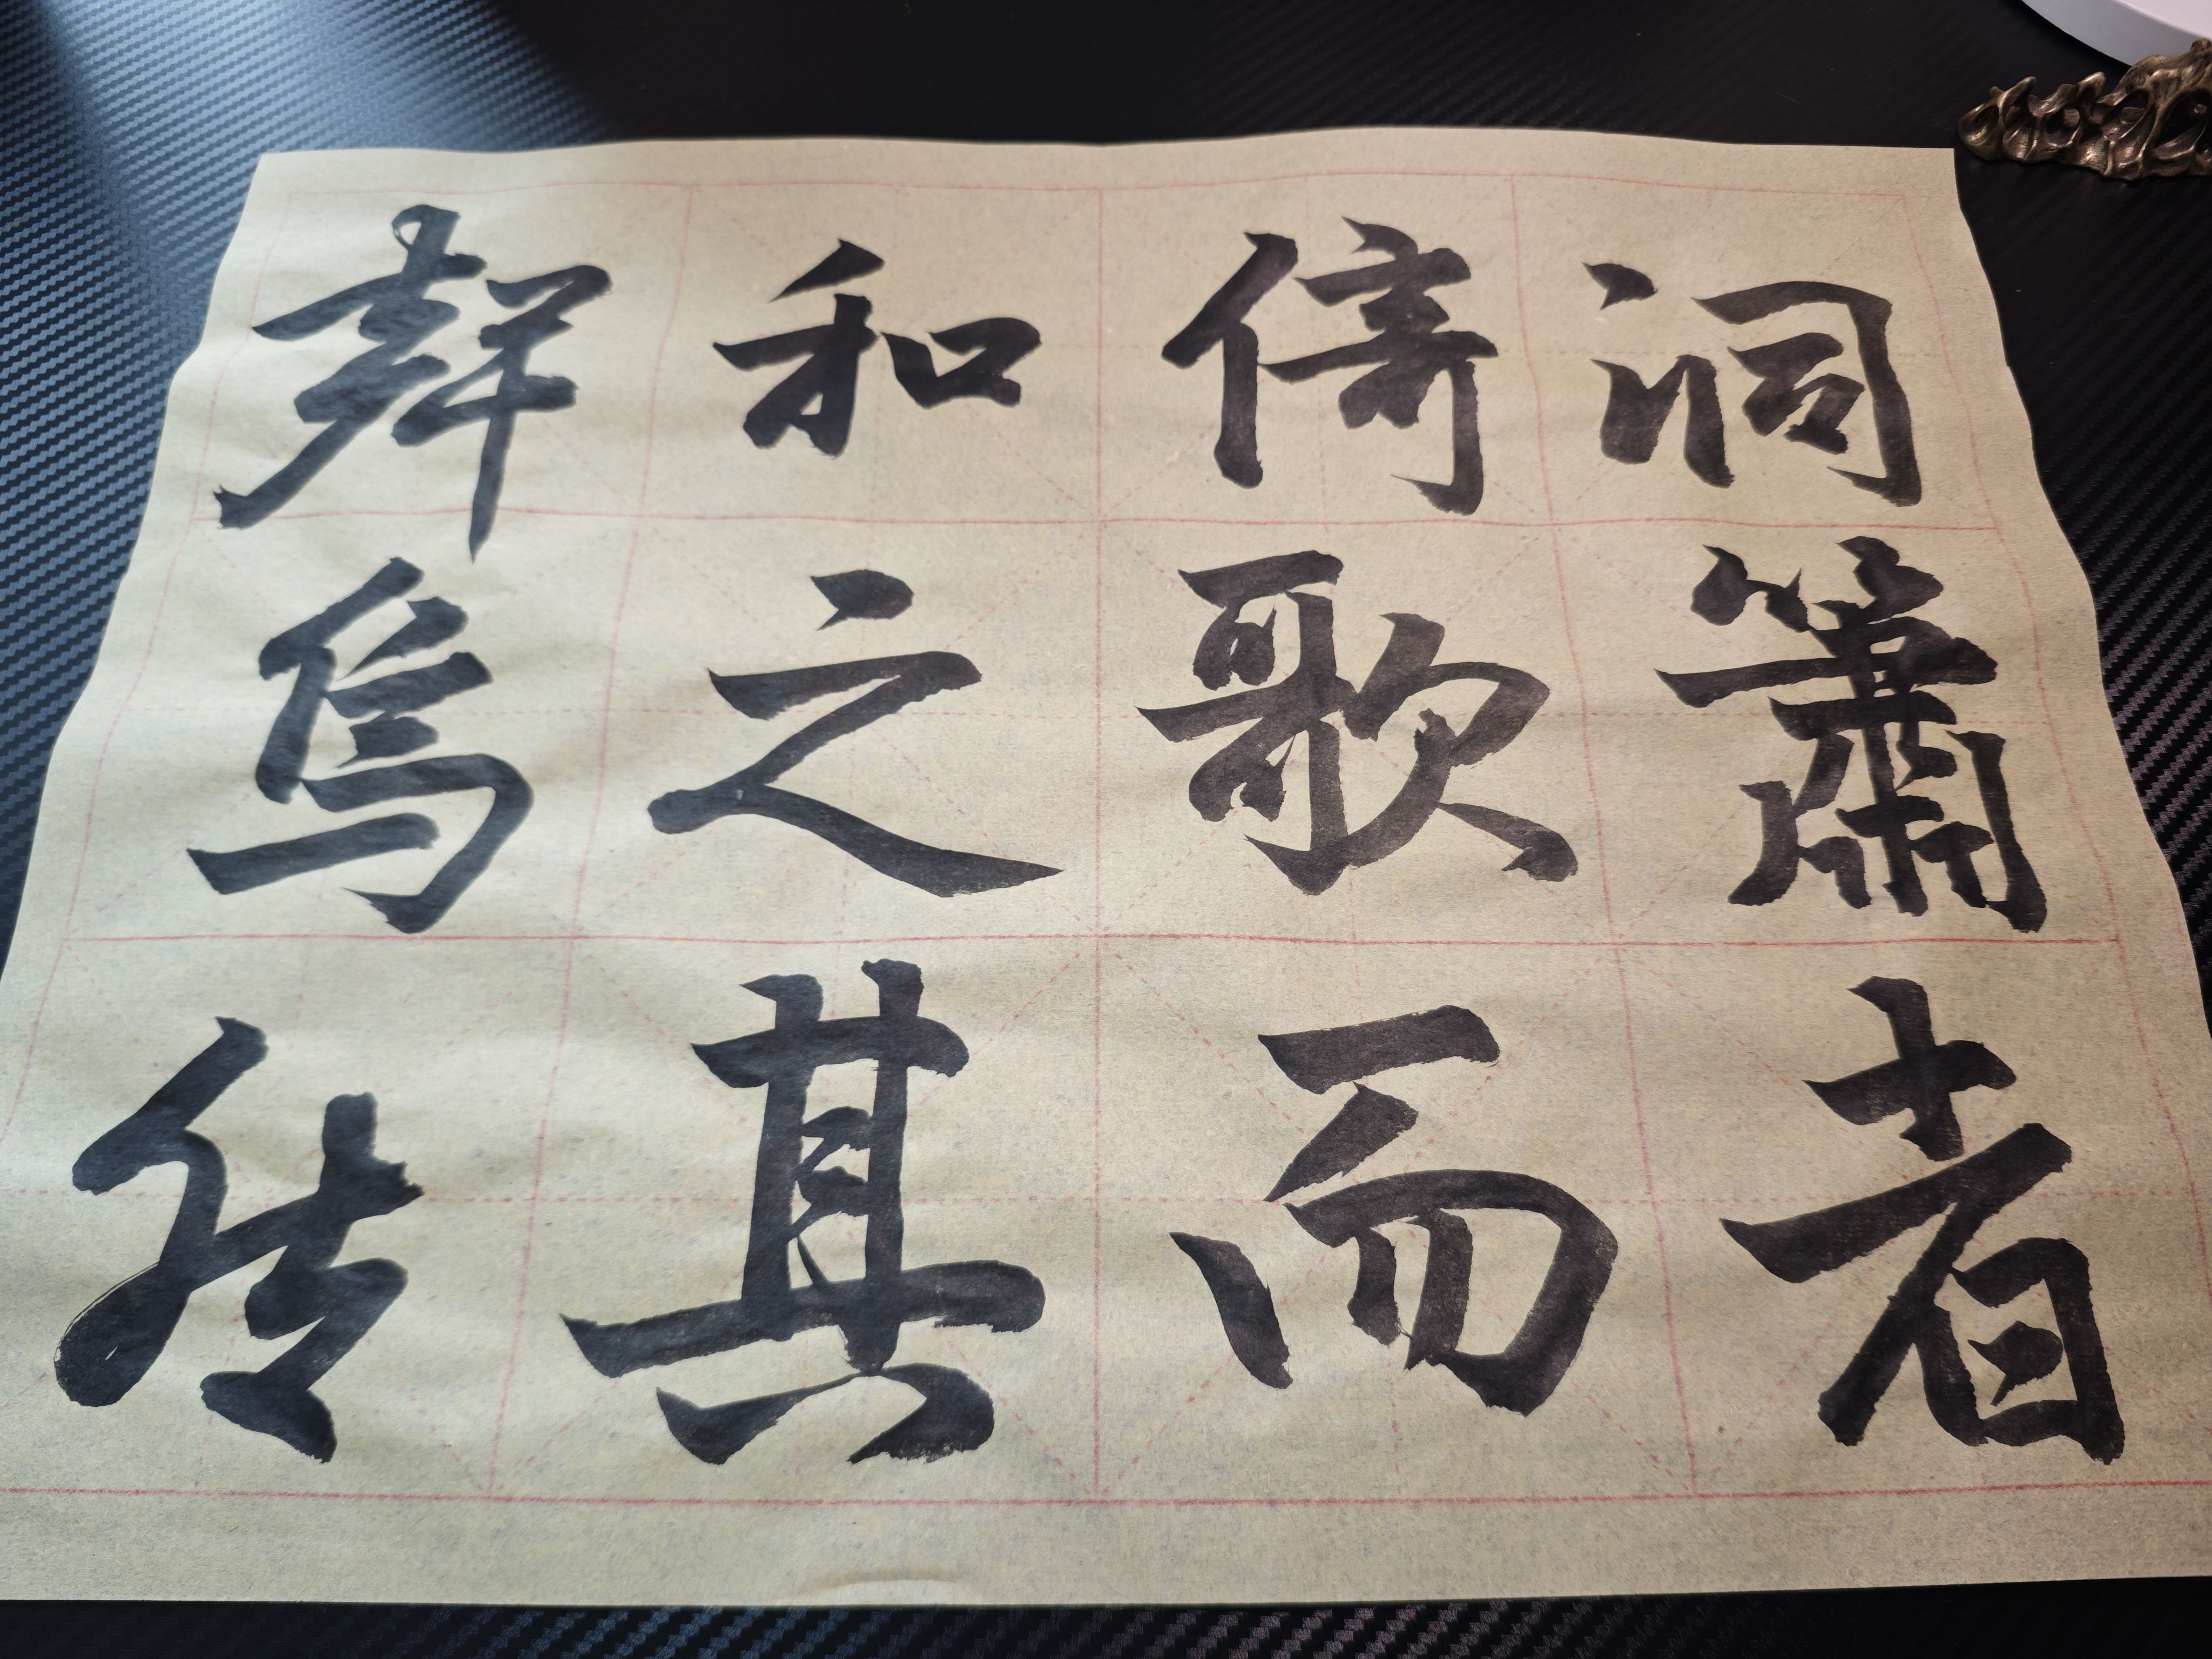 洞簫者
倚歌而
和之其
聲烏